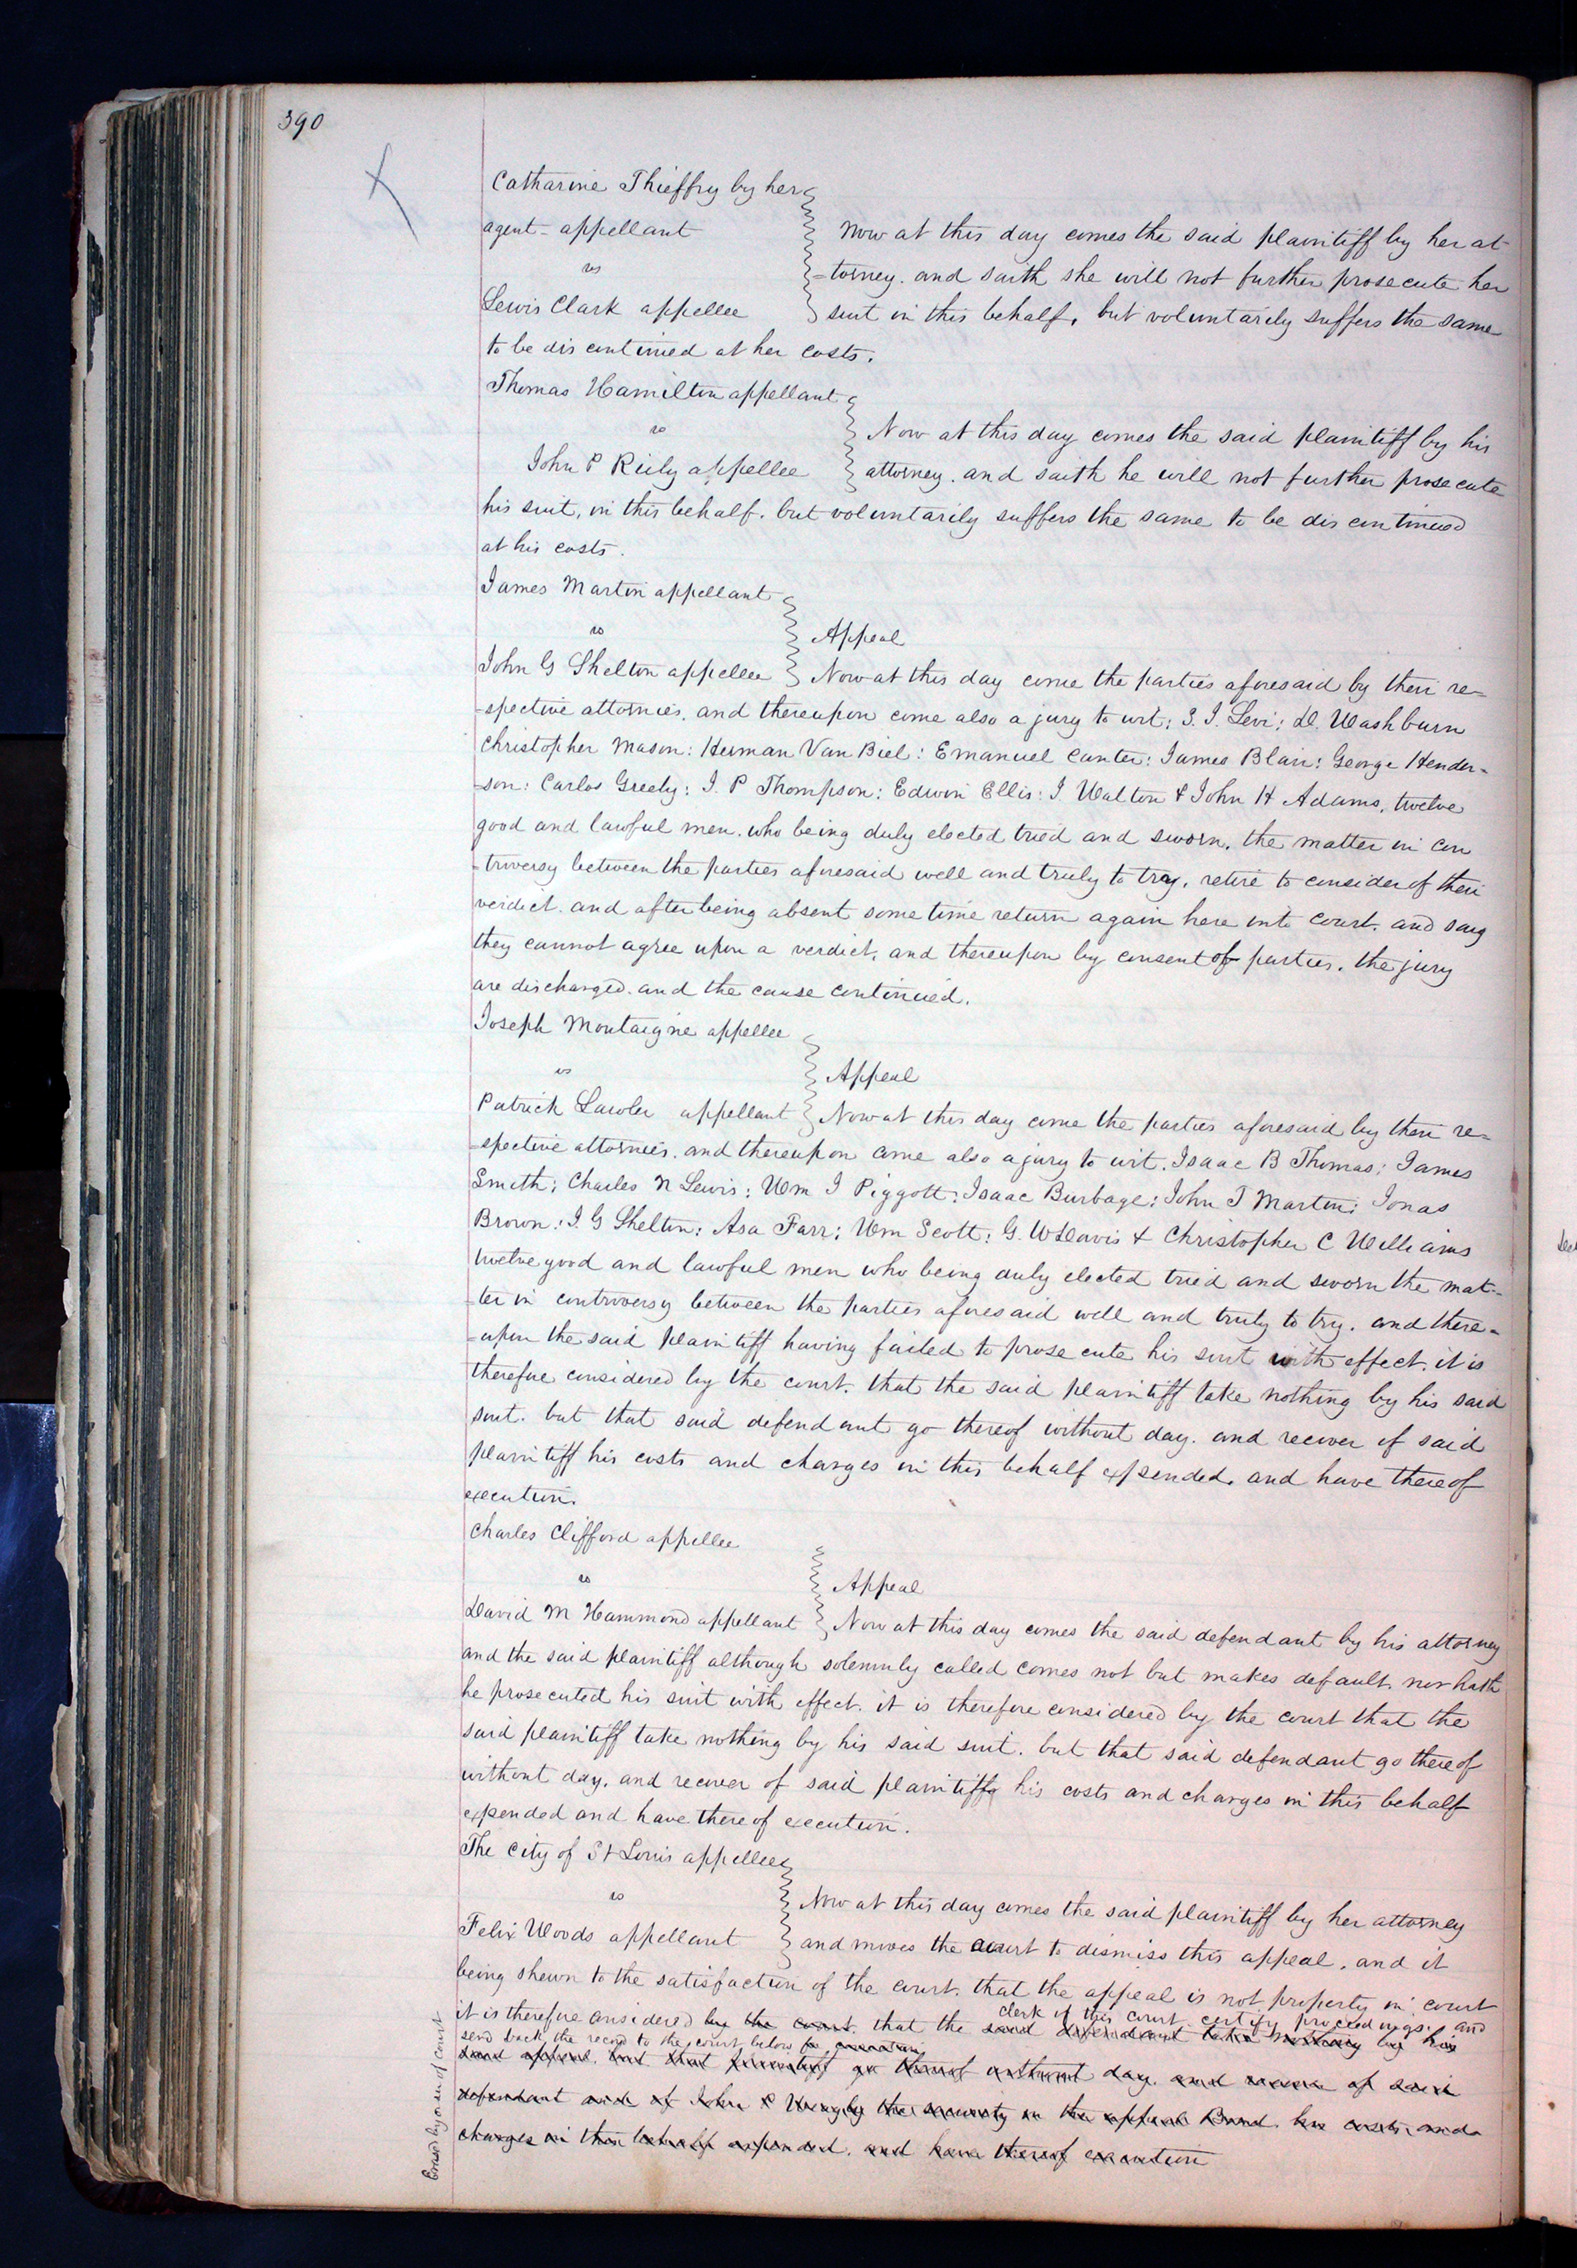 390
Catharine Thieffry by her
agent - appellant
vs
Lewis Clark appellee
Now at this day comes the said plaintiff by her at-
-torney. and saith she will not further prosecute her
suit in this behalf, but voluntarily suffers the same
to be discontinued at her costs.
Thomas Hamilton appellant
vs
John P Riely appellee
Now at this day comes the said plaintiff by his
attorney. and saith he will not further prosecute
his suit, in this behalf. but voluntarily suffers the same to be discontinued
at his costs.
James Martin appellant
vs
John G Shelton appellee
Appeal
Now at this day come the parties aforesaid by their re-
-spective attornies. and thereupon come also a jury to wit; S. J. Levi; D. Washburn
Christopher Mason: Herman Van Biel: Emanuel Canter: James Blair: George Hender-
-son: Carlos Greely: J. P Thompson: Edwin Ellis: J. Walton & John H Adams, twelve
good and lawful men. who being duly elected tried and sworn. the matter in con
-troversy between the parties aforesaid well and truly to try, retire to consider of their
verdict. and after being absent some time return again here into court. and say
they cannot agree upon a verdict, and thereupon by consent of parties. the jury
are discharged. and the cause continued.
Joseph Montaigne appellee
vs
Patrick Lawler appellant
Appeal
Now at this day come the parties aforesaid by their re-
-spective attornies. and thereupon come also a jury to wit. Isaac B Thomas; James
Smith; Charles N Lewis; Wm J Piggott; Isaac Burbage; John T Martin; Jonas
Brown; J. G Shelton; Asa Farr; Wm Scott; G. W Davis & Christopher C Williams
twelve good and lawful men who being duly elected tried and sworn the mat-
-ter in controversy between the parties aforesaid well and truly to try. and there-
-upon the said plaintiff having failed to prosecute his suit with effect. it is
therefore considered by the court. that the said plaintiff take nothing by his said
suit. but that said defendant go thereof without day. and recover of said
plaintiff his costs and charges in this behalf expended. and have thereof
execution.
Charles Clifford appellee
vs
David M Hammond appellant
Appeal
Now at this day comes the said defendant by his attorney
and the said plaintiff although solemnly called comes not but makes default. nor hath
he prosecuted his suit with effect. it is therefore considered by the court that the
said plaintiff take nothing by his said suit. but that said defendant go thereof
without day. and recover of said plaintiff his costs and charges in this behalf
expended and have thereof execution.
The City of St Louis appellee
vs
Felix Woods appellant
Now at this day comes the said plaintiff by her attorney
and moves the court to dismiss this appeal. and it
being shewn to the satisfaction of the court. that the appeal is not property in court
clerk of this court certify proceedings. and
it is therefore considered by the court. that the said defendant take nothing by his
send back the record to the court below for execution
said appeal. but that plaintiff go thereof without day. and recover of said
defendant and of John P the security in the appeal Bond. her costs and
charges in this behalf expended. and have thereof execution
Erased by order of court